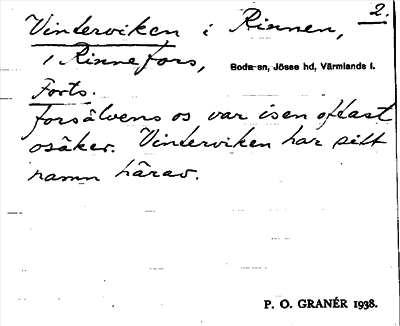 2.
Vinterviken i Rinnen,
i Rinnefors,
Boda sn, Jösse hd, Värmlands l.
Forts.
forsälvens os var isen oftast
osäker. Vinterviken har sitt
namn härav.
P. O. GRANÉR 1938.